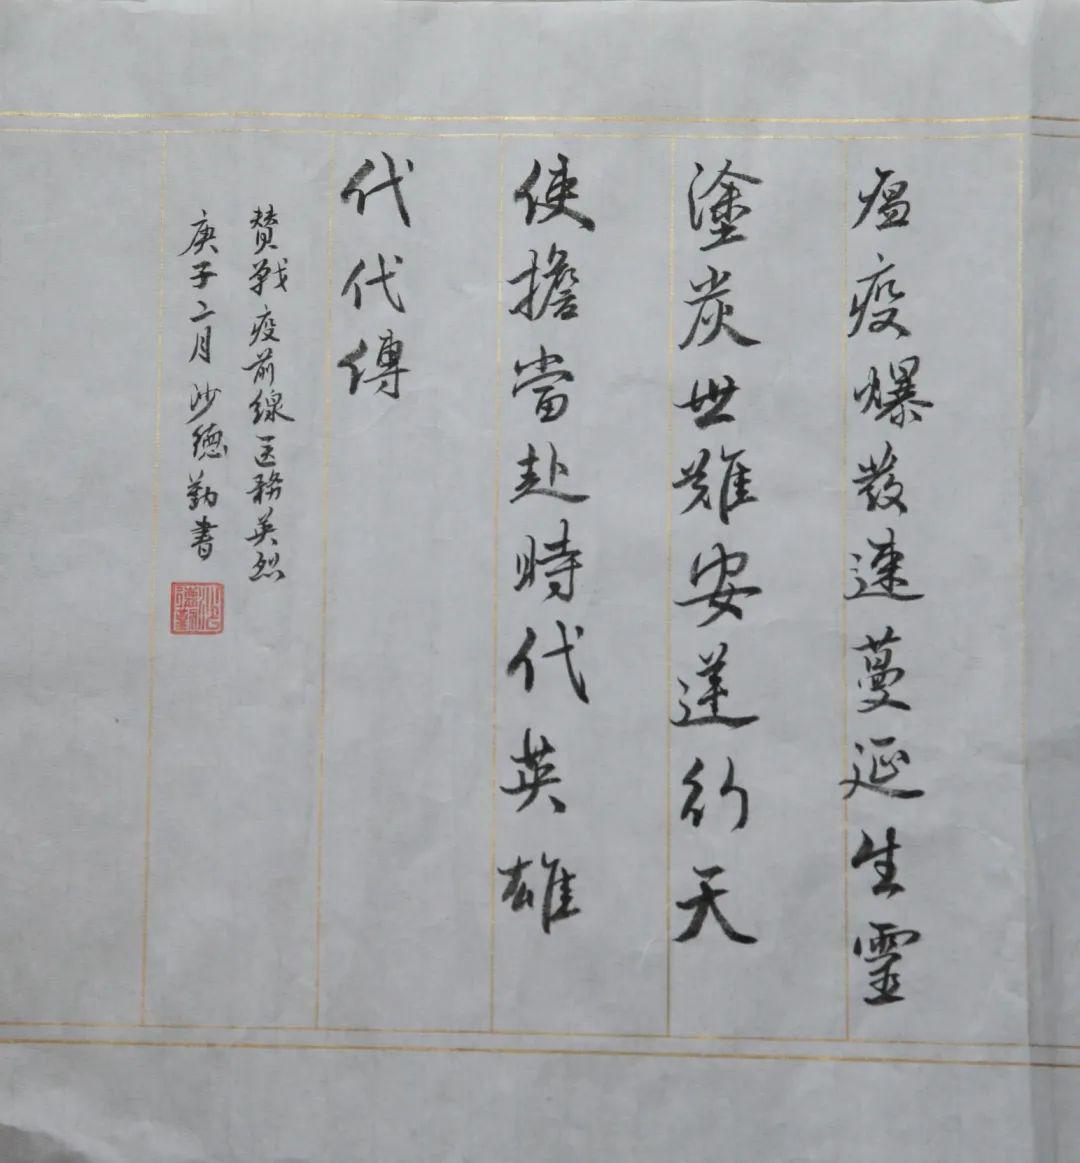 瘟疫爆發速蔓延生靈
塗炭世難安逆行天
使擔當赴時代英雄
代代傳
贊戰疫前線医務英烈
庚子二月沙德勤書
沙德勤印